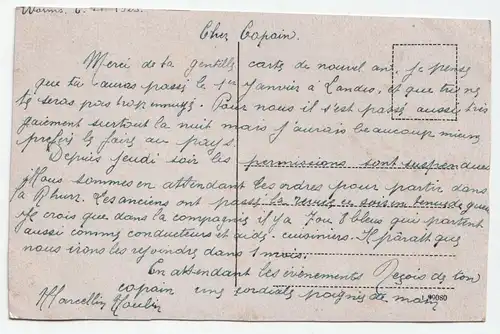 Worms, 6
Cher Copain.
Merci de ta gentille carte de nouvel an. Je pense
que tu auras passé le 1er Janvier à Landau, et que tu ne
t'es seras pas trop ennuyé. Pour nous il s'est passé aussi très
gaiement surtout la nuit mais j'aurais beaucoup mieux
préféré le faire au pays.
Depuis jeudi soir les permissions sont suspendues
Nous sommes en attendant les ordres pour partir dans
la Rhurr. Les anciens ont passé la revue en tenue de
Je crois que dans la compagnie il y a 7 ou 8 bleus qui partent
aussi comme conducteurs et aide-cuisiniers. Il paraît que
nous irons les rejoindre dans 1 mois.
En attendant les évènements Reçois de ton
copain cinq cordiale poignée de main
Marcellin
99080